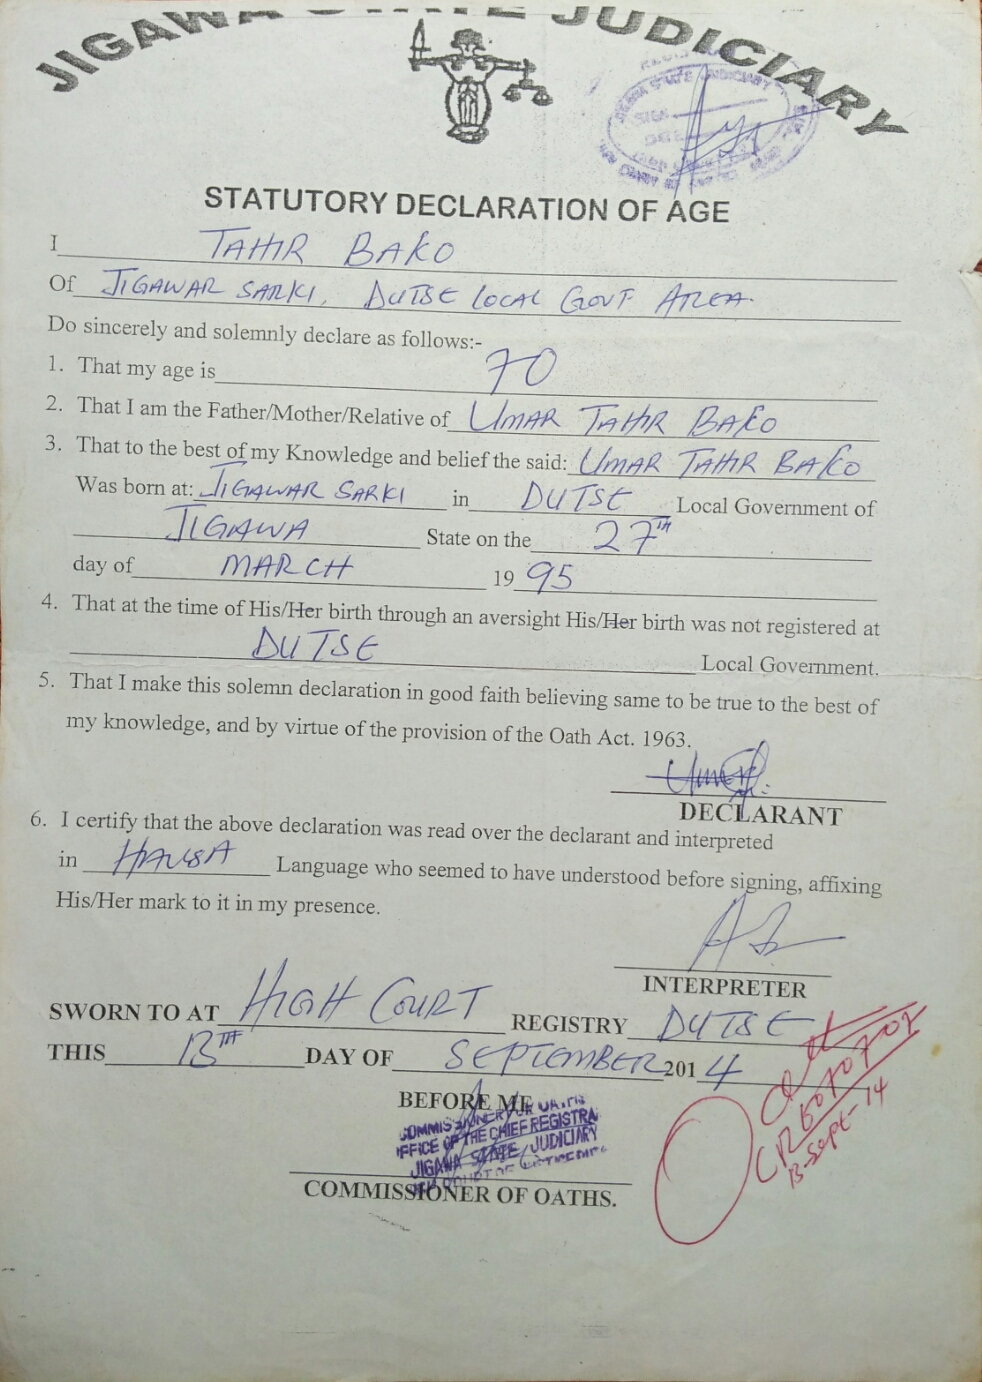 JIGAWA STATE JUDICIARY
JIGAWA STATE JUDICIARY
SIGN
DATE
STATUTORY DECLARATION OF AGE
I TAHIR BAKO
Of JIGAWAR SARKI, DUTSE LOCAL GOVT AREA.
Do sincerely and solemnly declare as follows:-
1. That my age is 70
2. That I am the Father/Mother/Relative of UMAR TAHIR BAKO
3. That to the best of my Knowledge and belief the said: UMAR TAHIR BAKO
Was born at: JIGAWAR SARKI in DUTSE Local Government of
JIGAWA State on the 27TH
day of MARCH 19 95
4. That at the time of His/Her birth through an aversight His/Her birth was not registered at
DUTSE Local Government.
5. That I make this solemn declaration in good faith believing same to be true to the best of
my knowledge, and by virtue of the provision of the Oath Act. 1963.
DECLARANT
6. I certify that the above declaration was read over the declarant and interpreted
in HAUSA Language who seemed to have understood before signing, affixing
His/Her mark to it in my presence.
INTERPRETER
SWORN TO AT HIGH COURT REGISTRY DUTSE
THIS 13TH DAY OF SEPTEMBER 2014
CR
13-SEPT-14
BEFORE ME
COMMISSIONER FOR OATHS
OFFICE OF THE CHIEF REGISTRA
JIGAWA STATE JUDICIARY
COMMISSIONER OF OATHS.